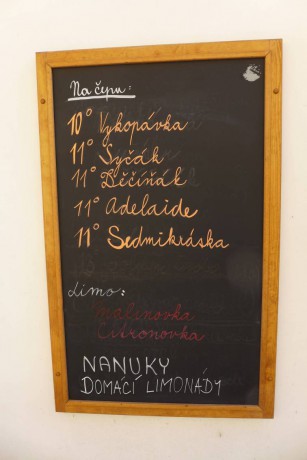 Na čepu:
10° Vykopávka
11° Syčák
11° Děčíňák
11° Adelaide
11° Sedmikráska
limo:
Malinovka
Citronovka
NANUKY
DOMÁCÍ LIMONÁDY